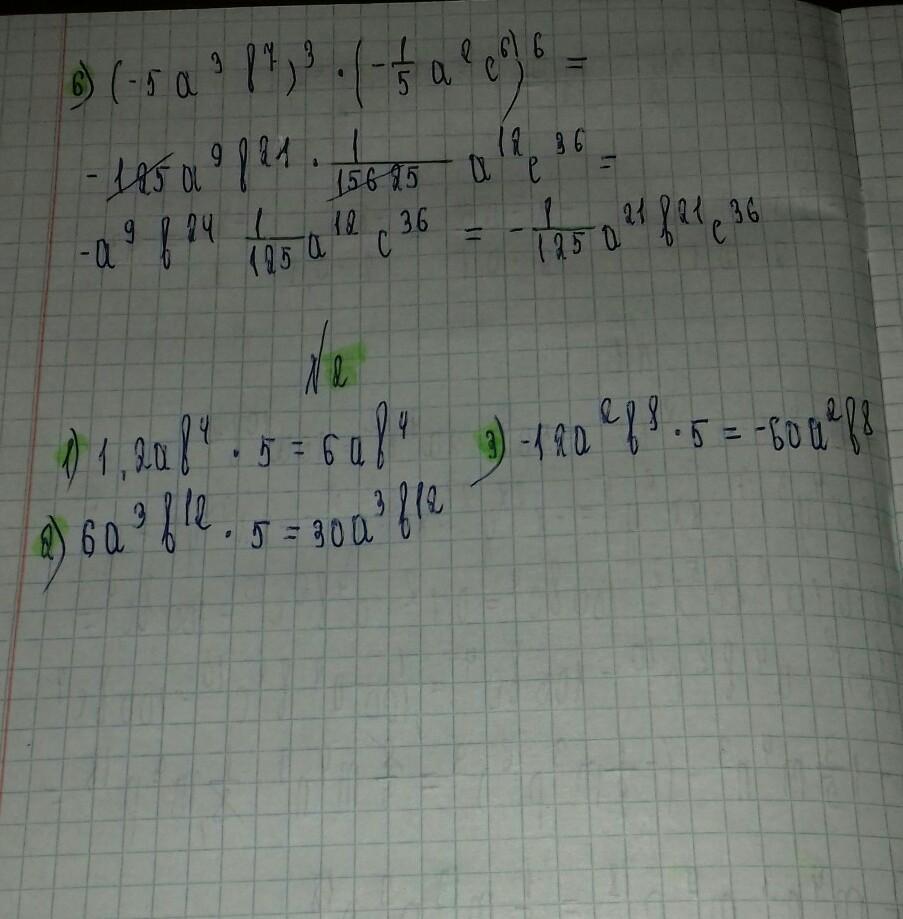 6) (-5a³b⁷)³ · (-1/5 a²c⁶)⁶ =
-125a⁹b²¹ · 1/15625 a¹²c³⁶ =
-a⁹b²¹ 1/125 a¹²c³⁶ = -1/125 a²¹b²¹c³⁶
N2
1) 1,2ab⁴ · 5 = 6ab⁴
3) -12a²b⁸ · 5 = -60a²b⁸
2) 6a³b¹² · 5 = 30a³b¹²